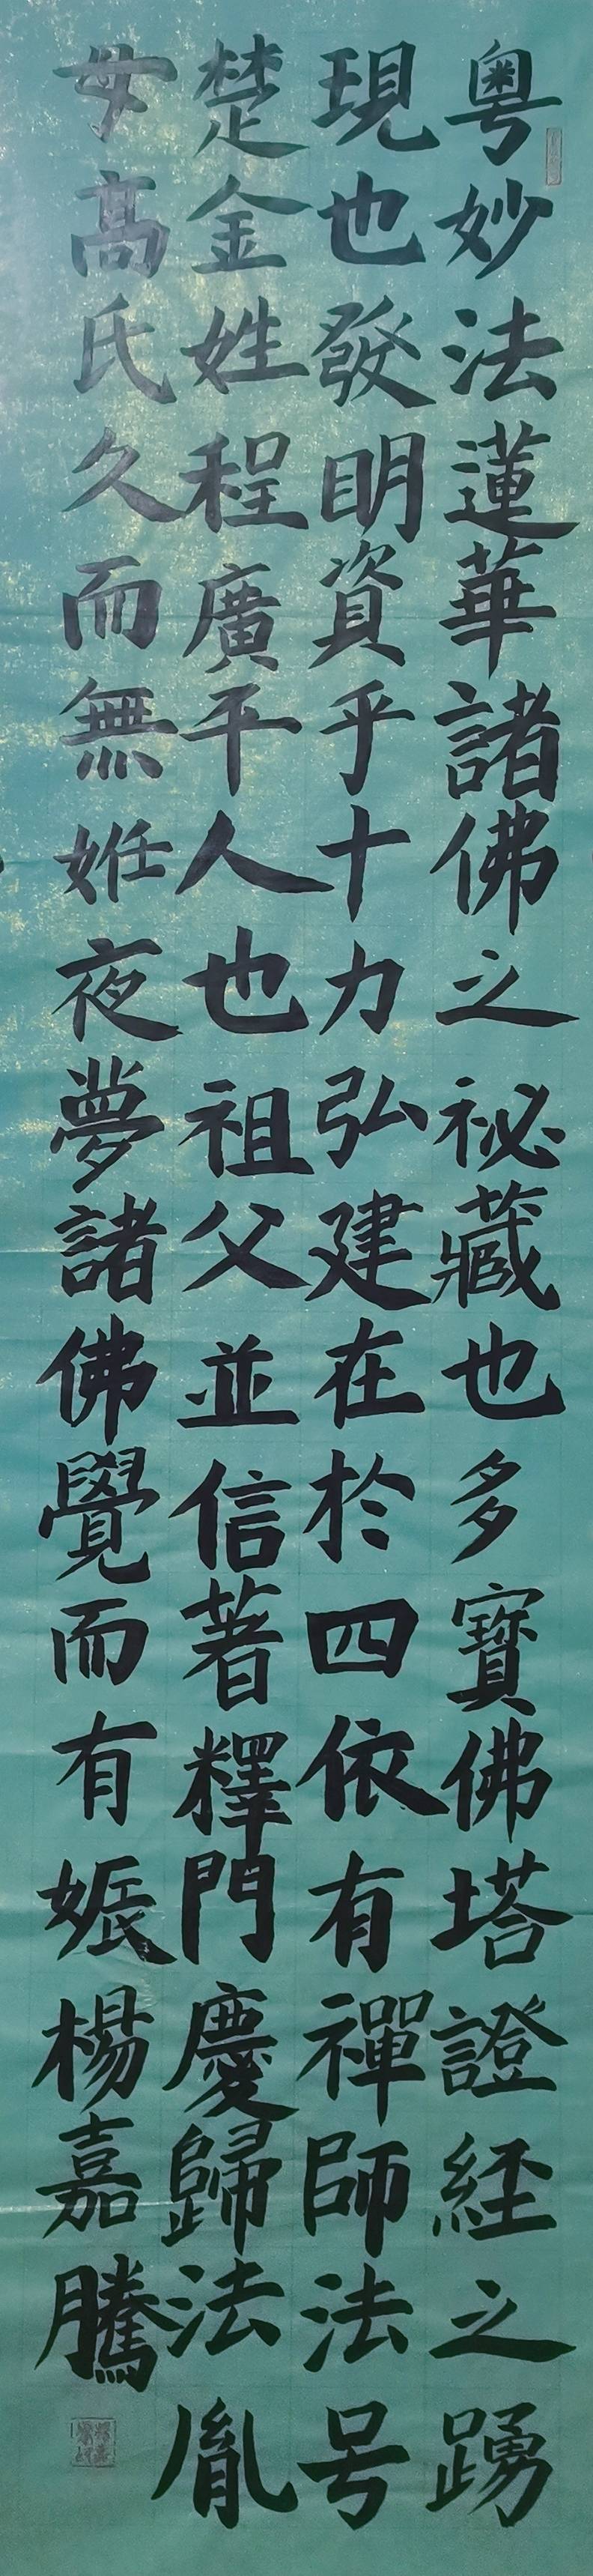 粤妙法蓮華諸佛之祕藏也多寳佛塔證経之踴
現也發明資乎十力弘建在於四依有禪師法号
楚金姓程廣平人也祖父並信著釋門慶歸法胤
母高氏久而無姙夜夢諸佛覺而有娠楊嘉騰